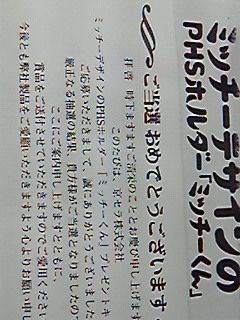 ミッチーデザインの
PHSホルダー「ミッチーくん」
ご当選おめでとうございます
拝啓 時下ますますご清祥のこととお慶び申し上げます
このたびは、京セラ株式会社
ミッチーデザインのPHSホルダー「ミッチーくん」プレゼントキ
ご応募いただきまして、誠にありがとうございました
厳正なる抽選の結果、貴方様がご当選となりましたので
ここにご案内申し上げますとともに
賞品をご送付させていただきますのでご愛用ください
今後とも弊社製品をご愛顧いただきますよう心よりお願い申し